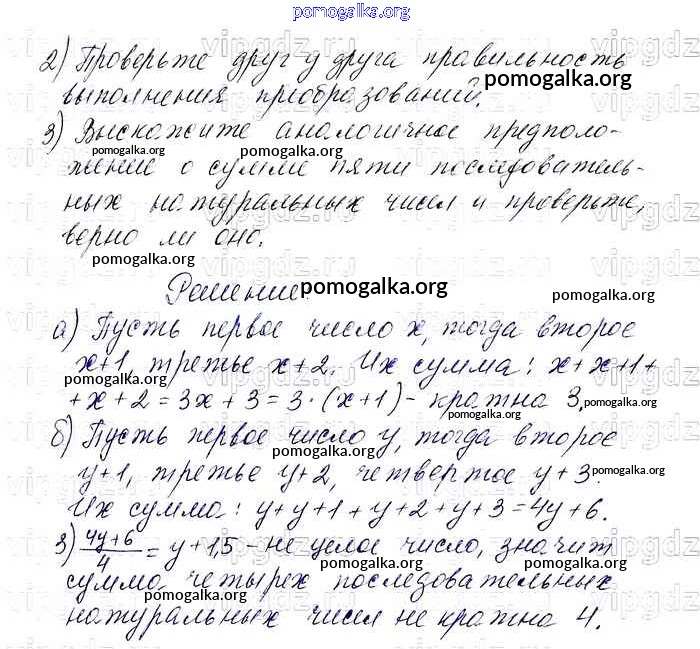 pomogalka.org
2) Проверьте друг у друга правильность
pomogalka.org
выполнения преобразований.
3) Выскажите аналогичное предполо-
pomogalka.org pomogalka.org
жение о сумме пяти последователь-
ных натуральных чисел и проверьте,
верно ли оно.
pomogalka.org
Решение.
pomogalka.org pomogalka.org
а) Пусть первое число x, тогда второе
x+1, третье x+2. Их сумма: x+x+1+
pomogalka.org pomogalka.org
+x+2=3x+3=3·(x+1)- кратна 3.
pomogalka.org
б) Пусть первое число y, тогда второе
y+1, третье y+2, четвертое y+3.
pomogalka.org pomogalka.org
Их сумма: y+y+1+y+2+y+3=4y+6.
3) (4y+6)/4 = y+1,5 - не целое число, значит
pomogalka.org pomogalka.org
сумма четырех последовательных
pomogalka.org
натуральных чисел не кратна 4.